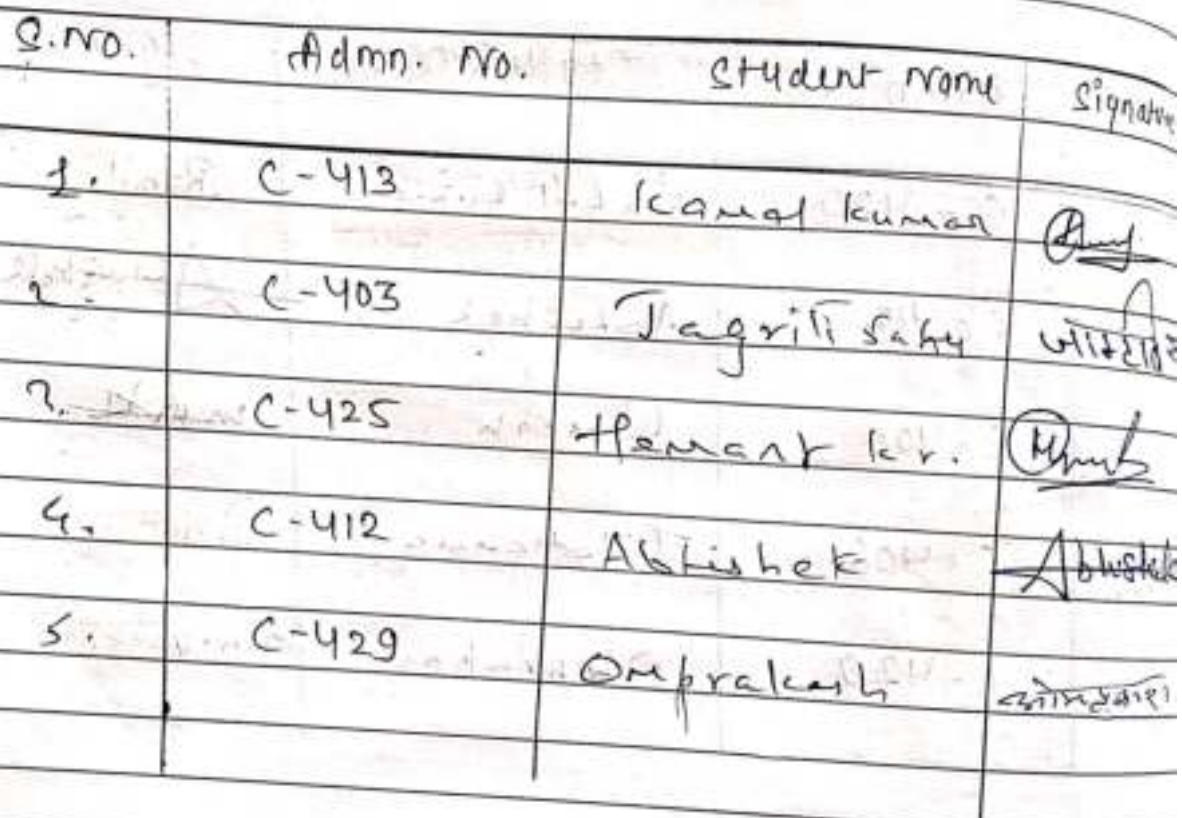 S.No. Admn. No. Student Name Signature
1. C-413 Kamal Kumar
2. C-403 Jagriti Sahu
3. C-425 Hemant kr.
4. C-412 Abhishek Abhishek
5. C-429 Omprakash ओमप्रकाश